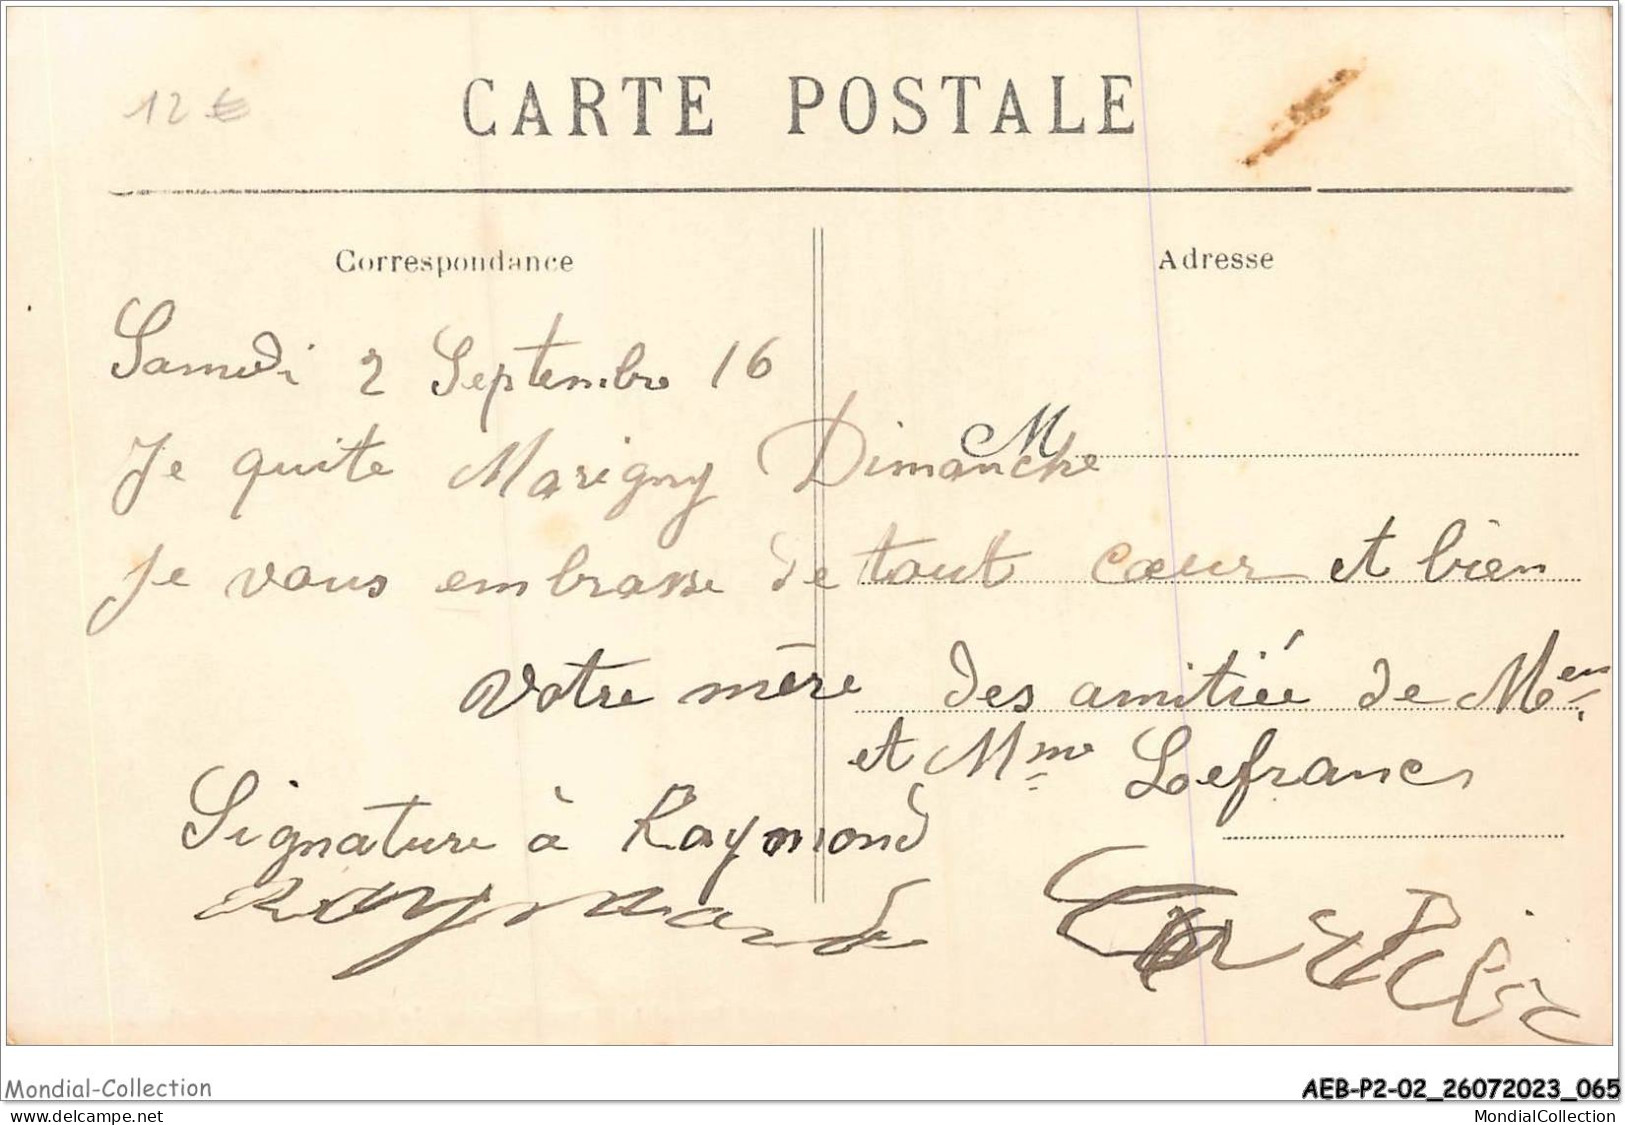 12 €
CARTE POSTALE
Correspondance
Adresse
Samedi 2 Septembre 16
M
Je quite Marigny Dimanche
Je vous embrasse de tout cœur et bien
Votre mère des amitiée de Mer
et Mme Lefranc
Signature à Raymond
Raymond
Mondial-Collection
AEB-P2-02_26072023_065
www.delcampe.net
MondialCollection